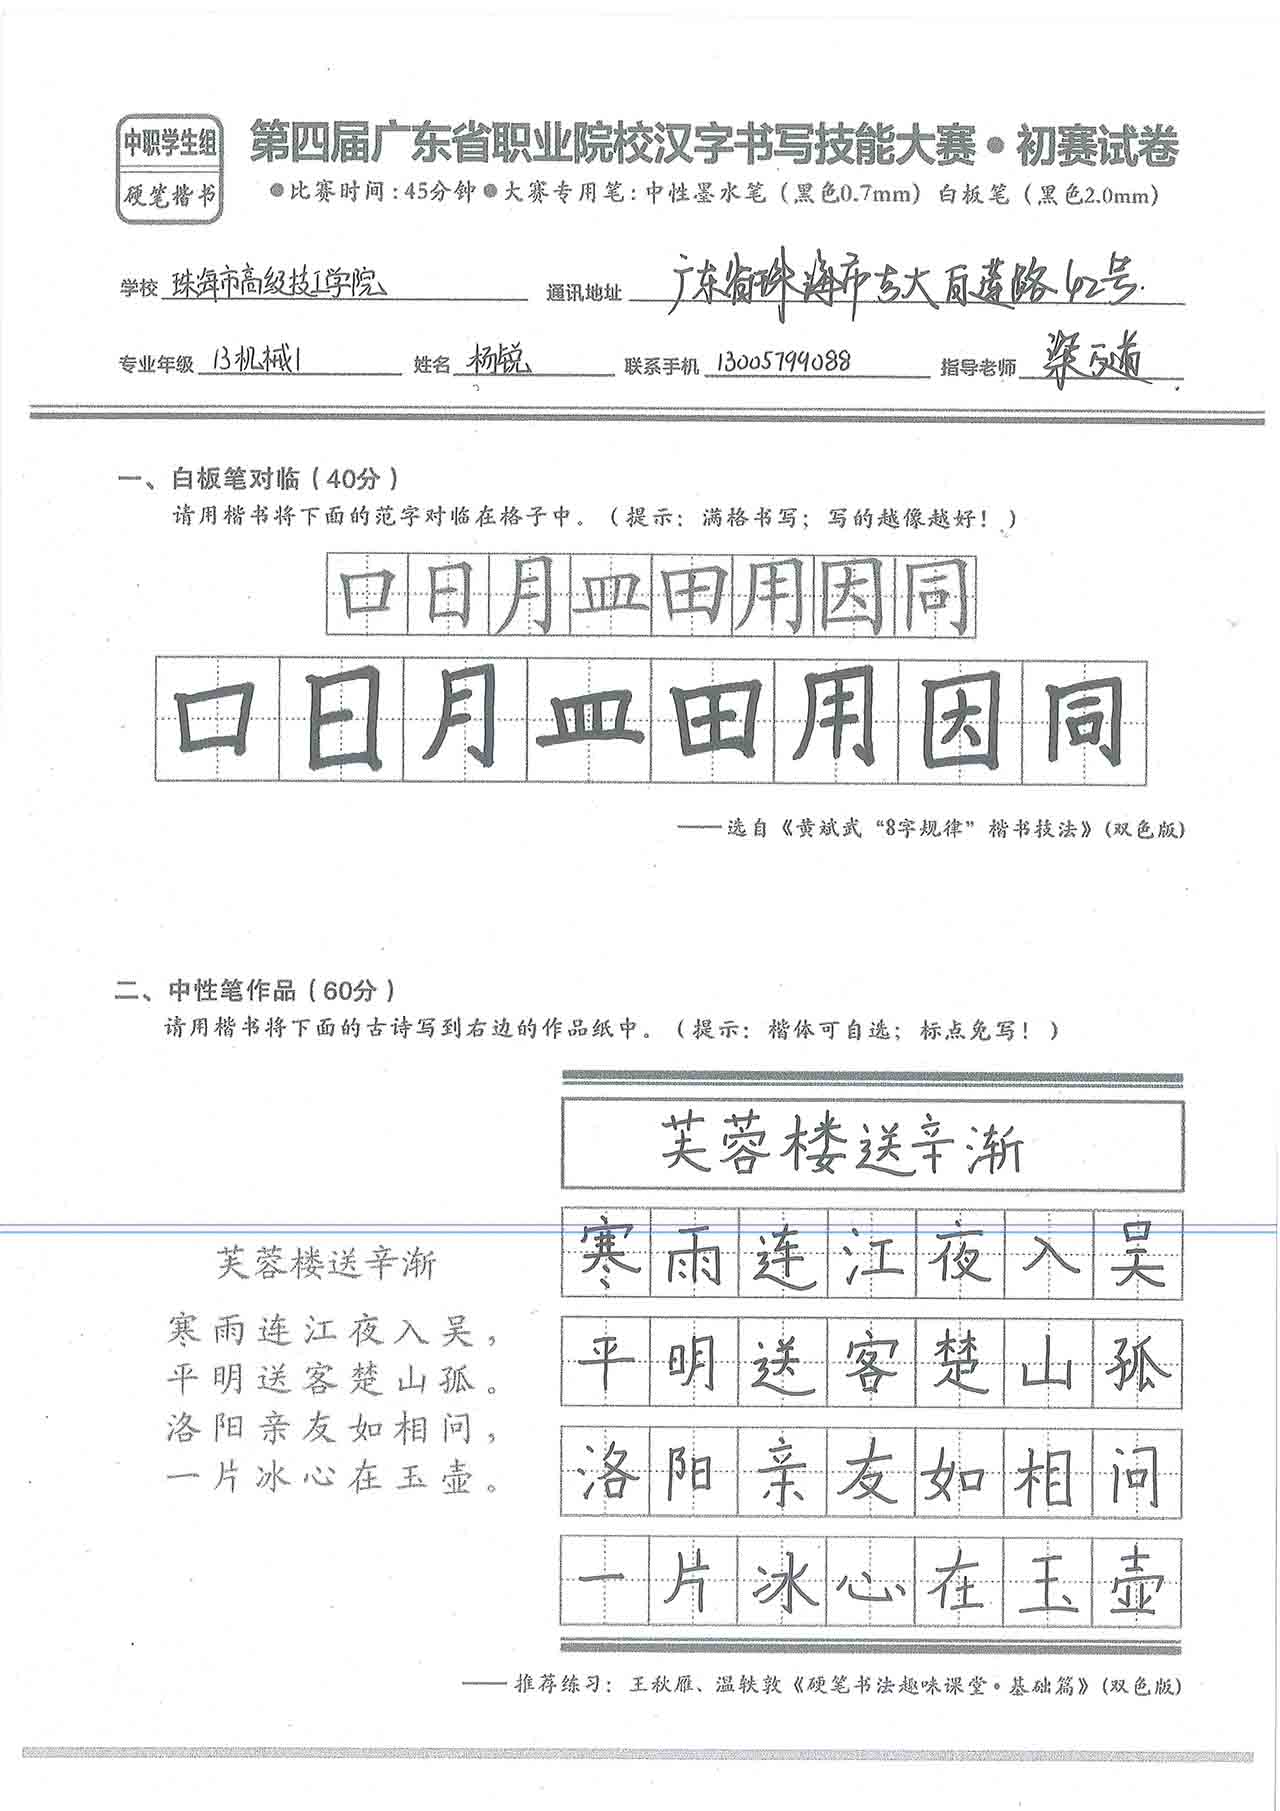 中职学生组
硬笔楷书
第四届广东省职业院校汉字书写技能大赛·初赛试卷
●比赛时间:45分钟●大赛专用笔:中性墨水笔（黑色0.7mm）白板笔（黑色2.0mm）
学校 珠海市高级技工学院 通讯地址 广东省珠海市吉大百莲路42号.
专业年级 13机械1 姓名 杨锐 联系手机 13005799088 指导老师 梁
一、白板笔对临（40分）
请用楷书将下面的范字对临在格子中。（提示：满格书写；写的越像越好！）
口日月皿田用因同
口日月皿田用因同
——选自《黄斌武“8字规律”楷书技法》(双色版)
二、中性笔作品（60分）
请用楷书将下面的古诗写到右边的作品纸中。（提示：楷体可自选；标点免写！）
芙蓉楼送辛渐
寒雨连江夜入吴，
平明送客楚山孤。
洛阳亲友如相问，
一片冰心在玉壶。
芙蓉楼送辛渐
寒雨连江夜入吴
平明送客楚山孤
洛阳亲友如相问
一片冰心在玉壶
——推荐练习：王秋雁、温轶敦《硬笔书法趣味课堂·基础篇》(双色版)